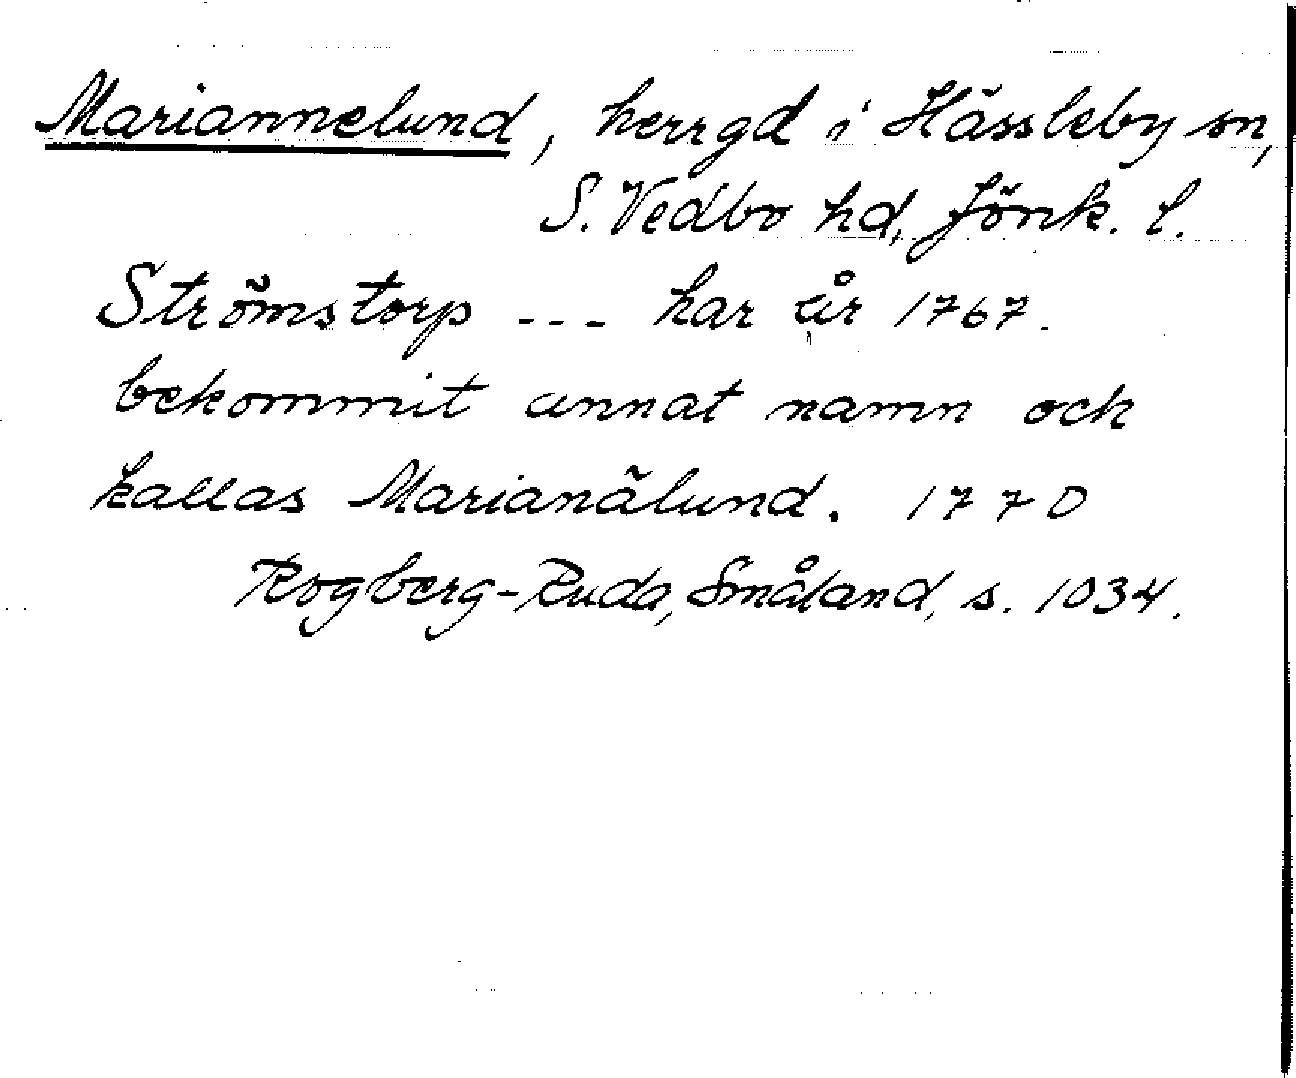 Mariannelund, herrgd i Hässleby sn,
S. Vedbo hd, Jönk. l.
Strömstorp --- har år 1767.
bekommit annat namn ock
kallas Marianälund. 1770
Rogberg-Ruda, Småland, s. 1034.